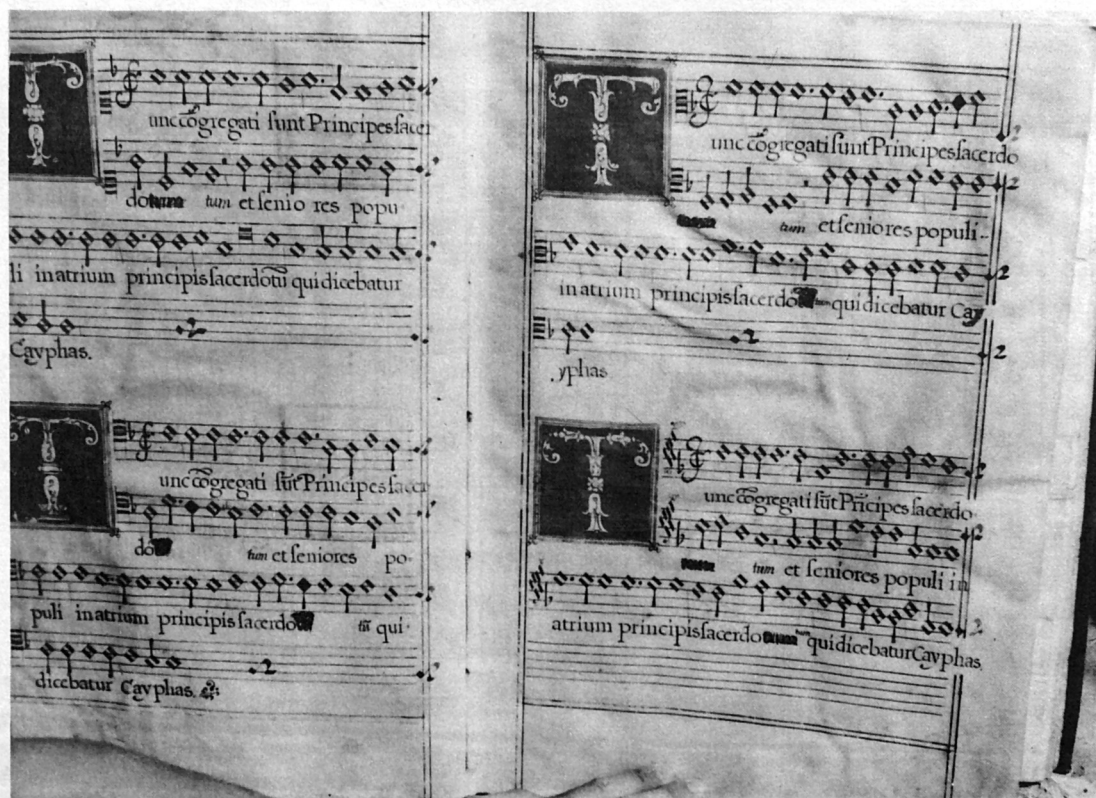 Tunc cõgregati sunt Principes sacer
do tum et senio res popu
li in atrium principis sacerdotũ qui dicebatur
Cayphas.
Tunc cõgregati sũt Principes sacer
do tum et seniores po-
puli in atrium principis sacerdo tũ qui
dicebatur Cayphas.
Tunc cõgregati sunt Principes sacerdo
tum et seniores populi
in atrium principis sacerdo tum qui dicebatur Cay
yphas
Tunc cõgregati sũt Prĩcipes sacerdo
tum et seniores populi in
atrium principis sacerdo tum qui dicebatur Cayphas